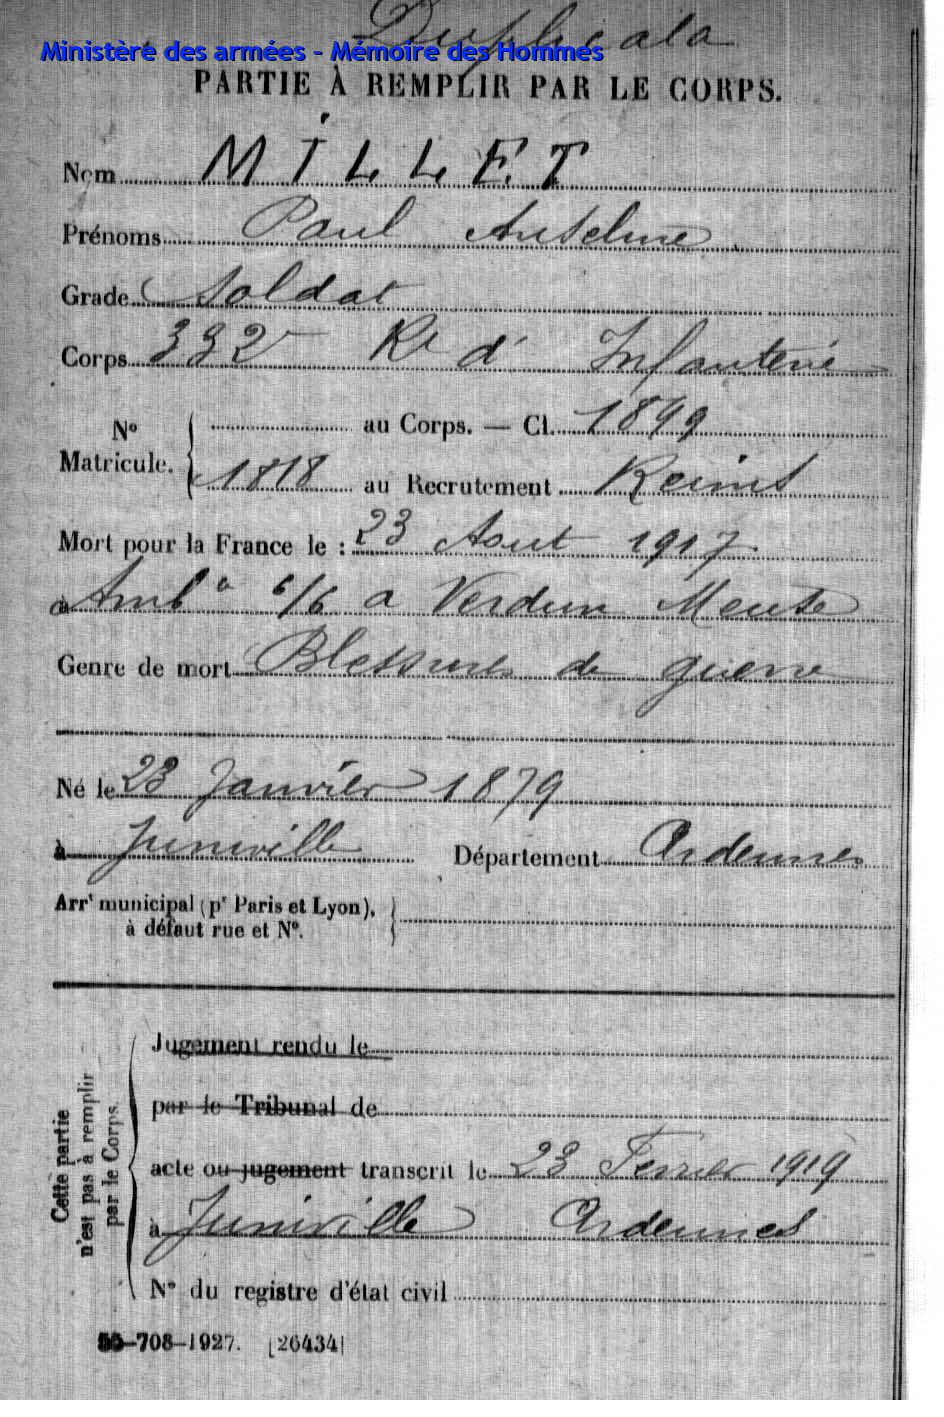 Duplicata
Ministère des armées - Mémoire des Hommes
PARTIE À REMPLIR PAR LE CORPS.
Nom MILLET
Prénoms Paul Anselme
Grade Soldat
Corps 332e Rt d' Infanterie
N° Matricule. { au Corps. — Cl. 1899
1818 au Recrutement Reims
Mort pour la France le : 23 Aout 1917
à Amb ce 6/6 a Verdun Meuse
Genre de mort Blessures de guerre
Né le 23 Janvier 1879
à Juniville Département Ardennes
Arrt municipal (pr Paris et Lyon),
à défaut rue et N°.
Cette partie n'est pas à remplir par le Corps.
Jugement rendu le
par le Tribunal de
acte ou jugement transcrit le 23 Fevrier 1919
à Juniville Ardennes
N° du registre d'état civil
-708-1927. [26434]